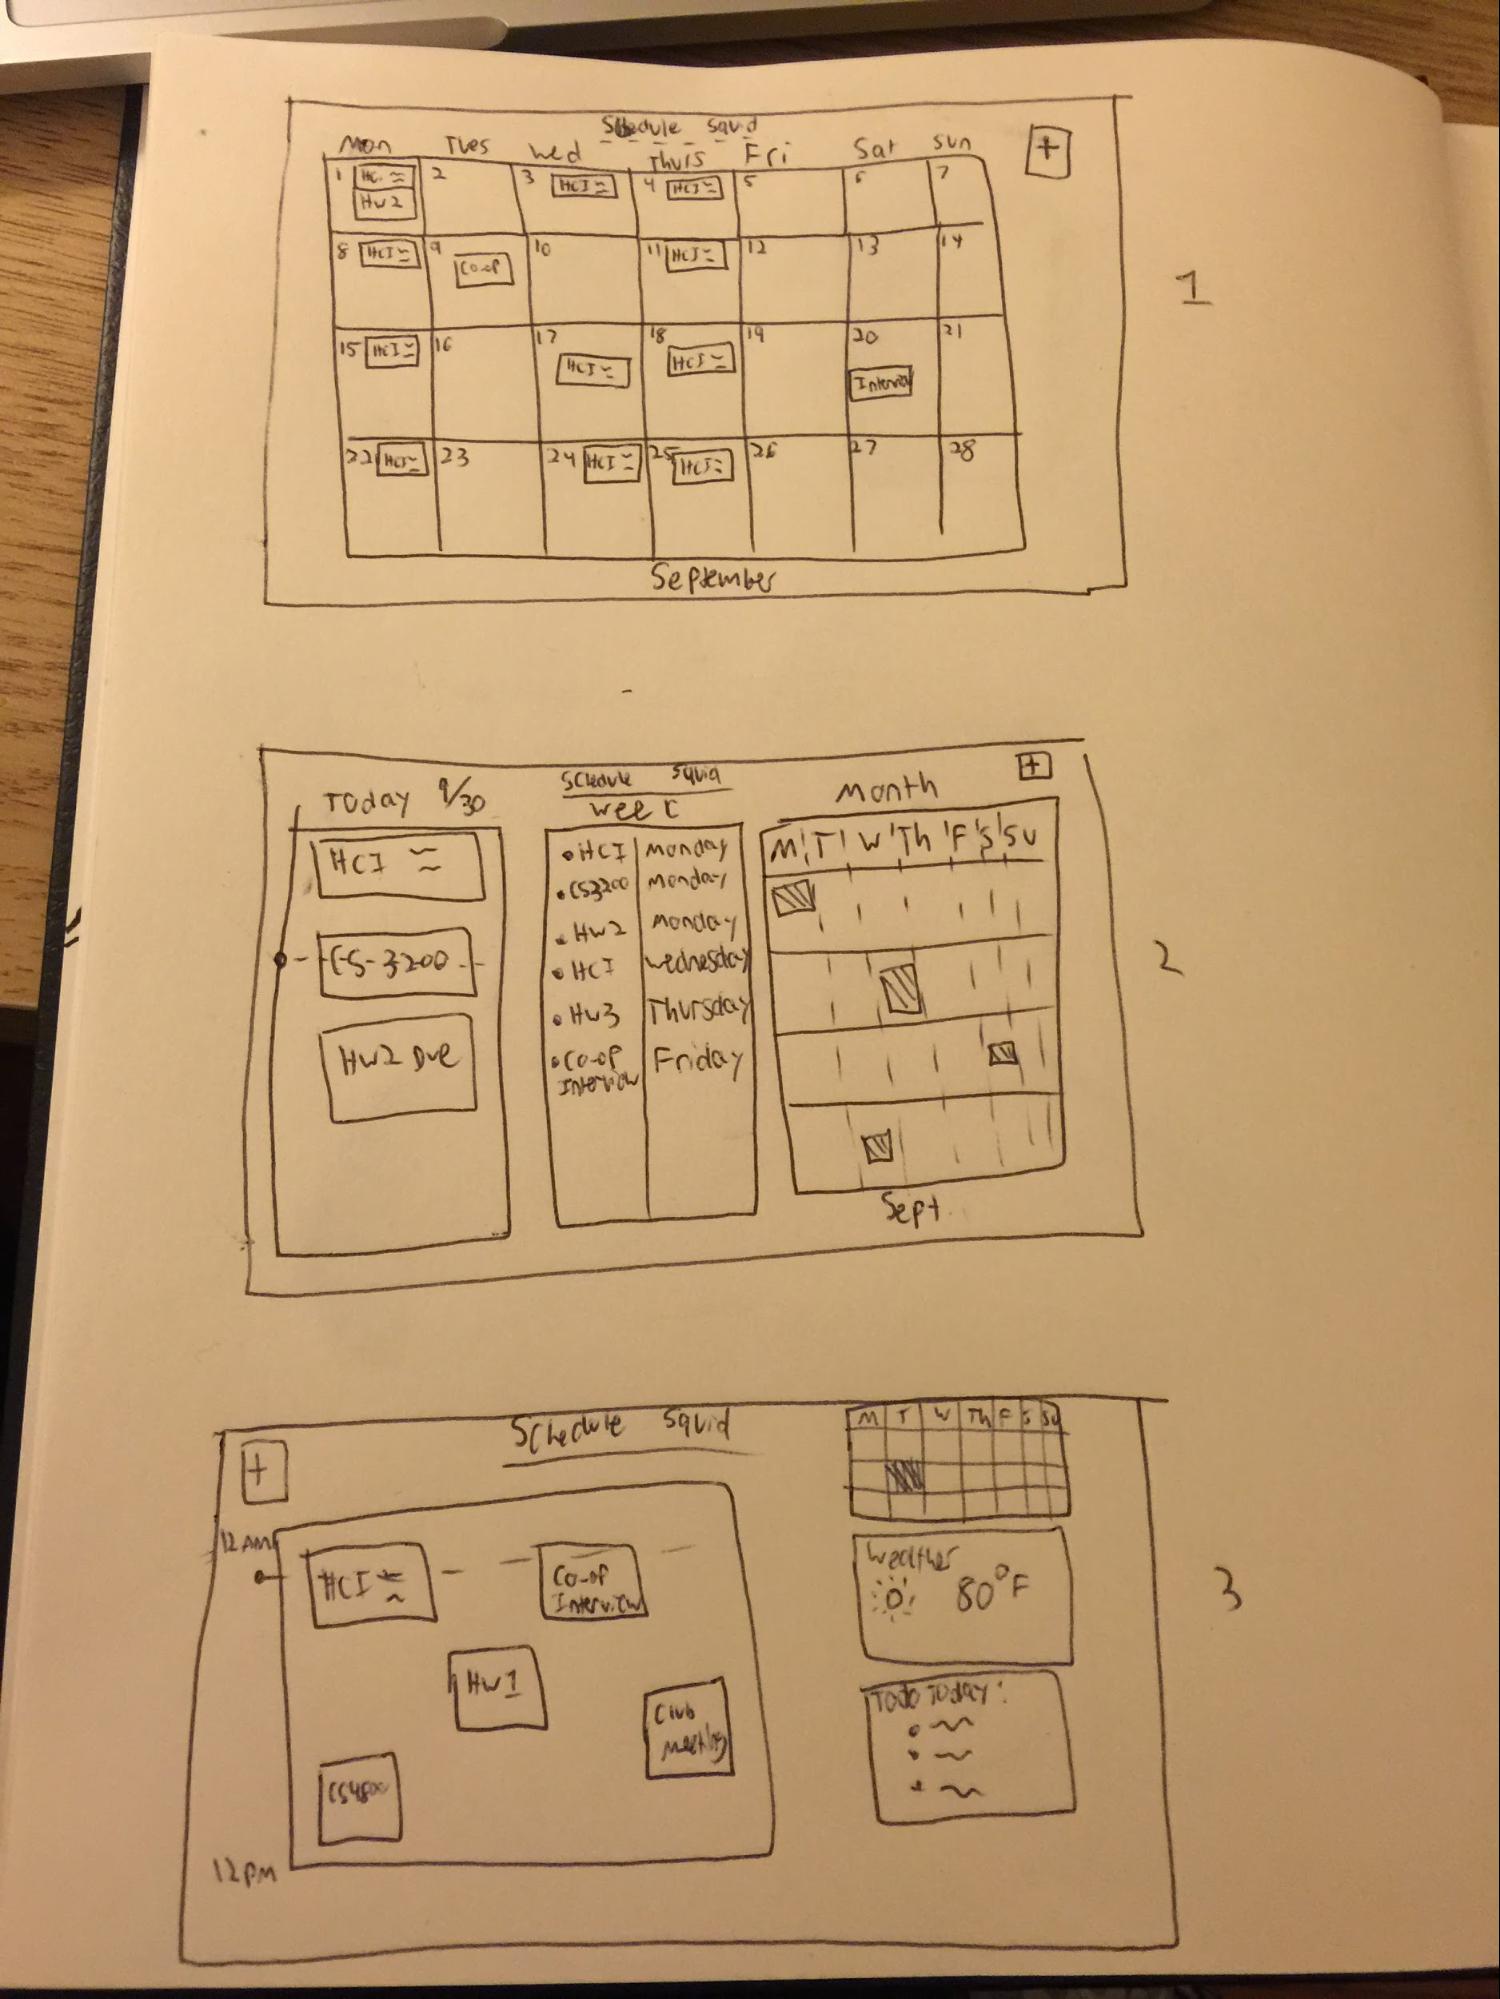 Schedule Squid
Mon Tues Wed Thurs Fri Sat Sun
+
1 HCI 2 3 HCI 4 HCI 5 6 7
HW2
8 HCI 9 10 11 HCI 12 13 14
Co-op
15 HCI 16 17 18 19 20 21
HCI HCI
Interview
22 HCI 23 24 HCI 25 HCI 26 27 28
September
1
Schedule Squid
+
Today 9/30
HCI
CS-3200
HW2 Due
Week
HCI Monday
CS3200 Monday
HW2 Monday
HCI Wednesday
HW3 Thursday
Co-op Friday
Interview
Month
M T W Th F S Su
Sept
2
Schedule Squid
+
12AM
HCI
Co-op
Interview
HW1
Club
Meeting
CS4800
12PM
M T W Th F S Su
Weather
80°F
Todo Today:
3